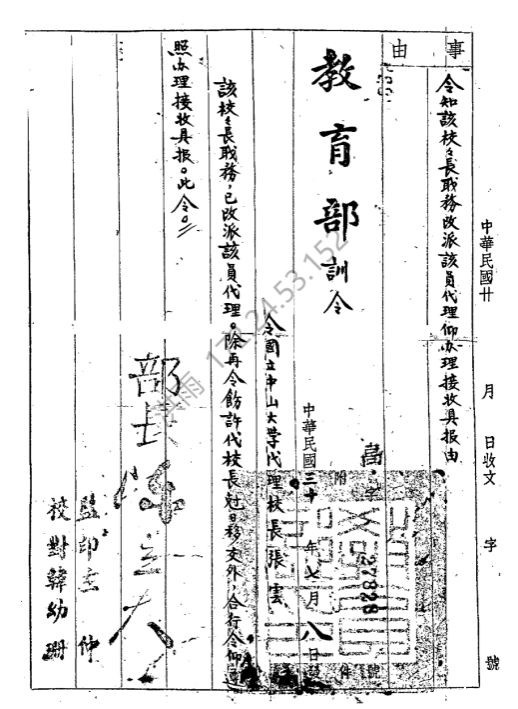 中華民國廿 月 日收文 字 號
事由
令知該校々長職務改派該員代理仰办理接收具报由
教育部訓令
高字27828號
附件
中華民國三十年七月八日發
令國立中山大學代理校長張雲
該校々長职務，已改派該員代理。除再令飭許代校長尅日移交外，合行令仰遵
照办理接收具报。此令。
部長陳立夫
監印
校對韓幼珊
171.24.53.152